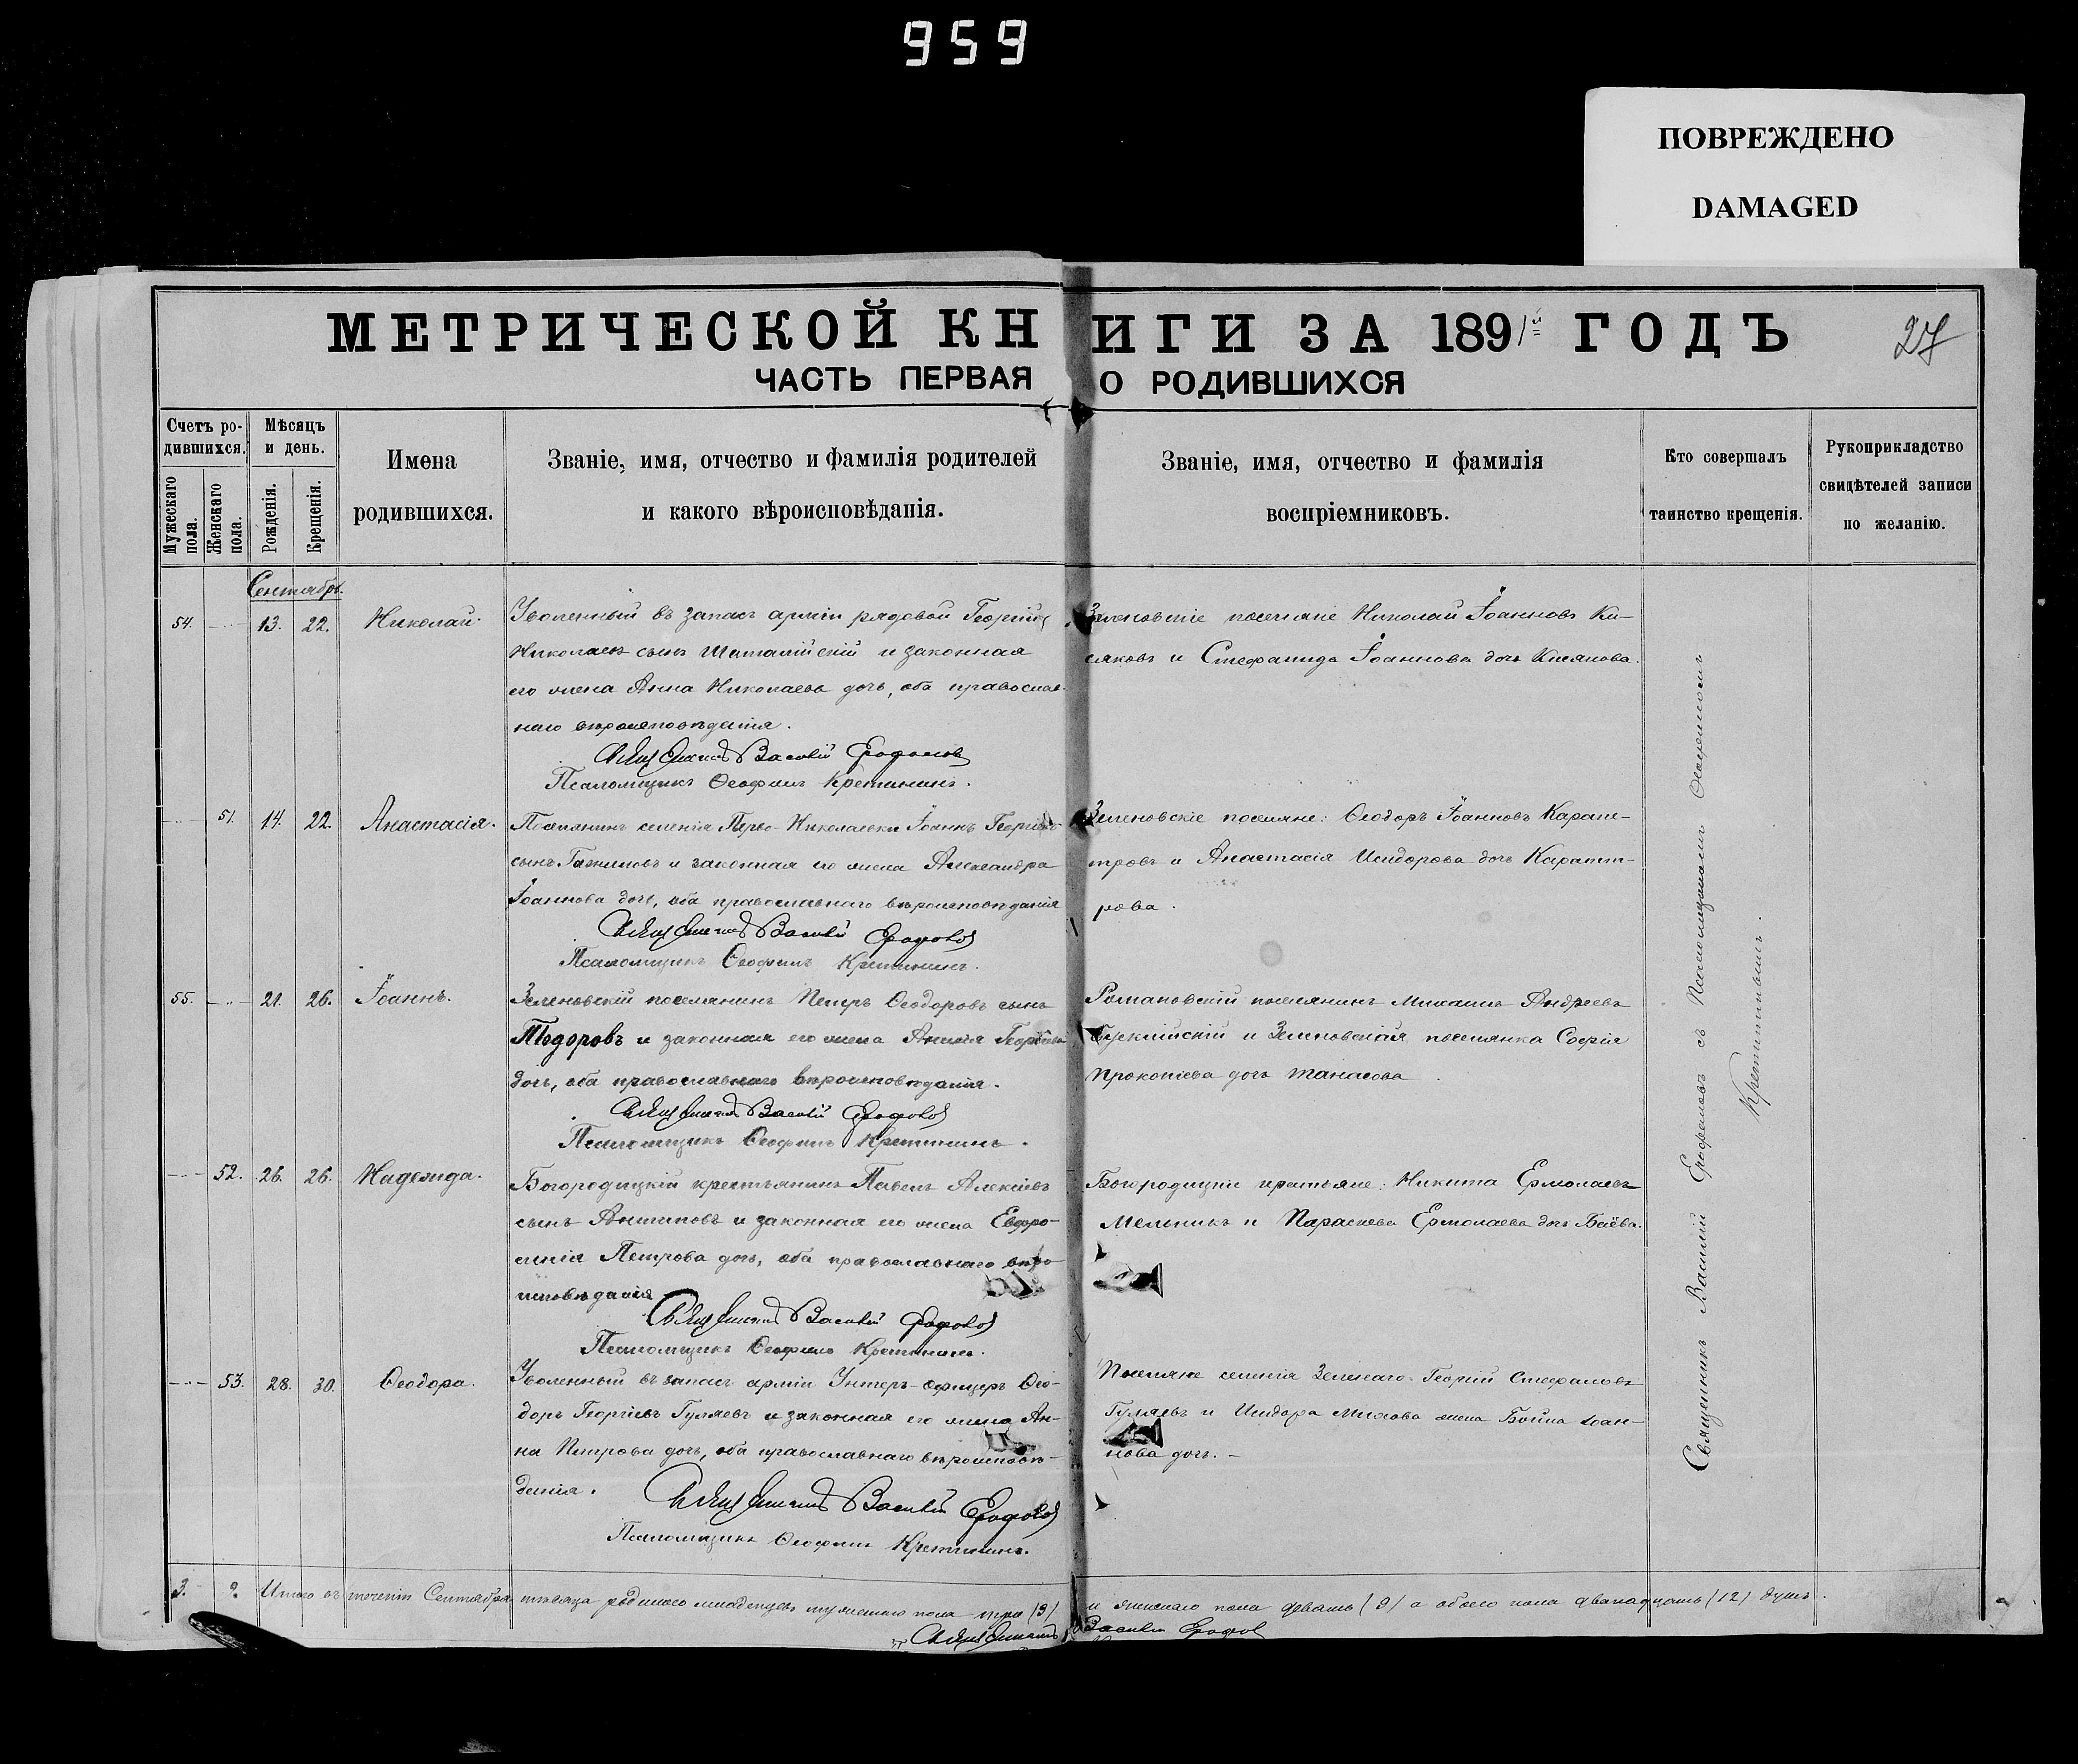 959
ПОВРЕЖДЕНО
DAMAGED
МЕТРИЧЕСКОЙ КНИГИ ЗА 1891й ГОДЪ
27
ЧАСТЬ ПЕРВАЯ О РОДИВШИХСЯ
Счетъ ро-
дившихся.
Мужескаго пола.
Женскаго пола.
Мѣсяцъ
и день.
Рожденія.
Крещенія.
Имена
родившихся.
Званіе, имя, отчество и фамилія родителей
и какого вѣроисповѣданія.
Званіе, имя, отчество и фамилія
воспріемниковъ.
Кто совершалъ
таинство крещенія.
Рукоприкладство
свидѣтелей записи
по желанію.
Сентябрь.
54. 13. 22. Николай.
Уволенный въ запасъ арміи рядовой Георгій
Николаевъ сынъ и законная
его жена Анна Николаева дочь, оба православ-
наго вѣроисповѣданія.
Священникъ Василій Ерофеловъ
Псаломщикъ Ѳеофилъ Кретининъ.
поселяне Николай Іоанновъ Ки-
сяковъ и Стефанида Іоаннова дочь Кисякова.
51. 14. 22. Анастасія.
Поселянинъ селенія Перво-Николаевки Іоаннъ Георгіевъ
сынъ и законная его жена Александра
Іоаннова дочь, оба православнаго вѣроисповѣданія
Священникъ Василій
Псаломщикъ Ѳеофилъ Кретининъ.
Зеленовскіе поселяне: Ѳеодоръ Іоанновъ Карапе-
тровъ и Анастасія Исидорова дочь Карапет-
рова.
55. 21. 26. Іоаннъ.
Зеленовскій поселянинъ Петръ Ѳеодоровъ сынъ
Тѣдоровъ и законная его жена Георгіева
дочь, оба православнаго вѣроисповѣданія.
Священникъ Василій
Псаломщикъ Ѳеофилъ Кретининъ.
Романовскій поселянинъ Михаилъ Андреевъ
и Зеленовская поселянка Софія
Прокопіева дочь Танасова.
52. 26. 26. Надежда.
Богородицкій крестьянинъ Павелъ Алексіевъ
сынъ Антиповъ и законная его жена Евфро-
синія Петрова дочь, оба православнаго вѣро-
исповѣданія
Священникъ Василій
Псаломщикъ Ѳеофилъ Кретининъ.
Богородицкіе крестьяне: Никита Ермолаевъ
Мельникъ и Параскева Ермолаева дочь Баёва.
53. 28. 30. Ѳеодора.
Уволенный въ запасъ арміи Унтеръ-офицеръ Ѳео-
доръ Георгіевъ Гуляевъ и законная его жена Ан-
на Петрова дочь, оба православнаго вѣроисповѣ-
данія.
Священникъ Василій
Псаломщикъ Ѳеофилъ Кретининъ.
Поселяне селенія Зеленаго: Георгій Стефановъ
Гуляевъ и Исидора жена Іоан-
нова дочь.
Священникъ Василій съ Псаломщикомъ Ѳеофиломъ
Кретининымъ.
3. 9. Итого въ теченіи Сентября мѣсяца родилось младенцевъ мужескаго пола три (3) и женскаго пола девять (9) а обоего пола двѣнадцать (12) душъ.
Священникъ Василій